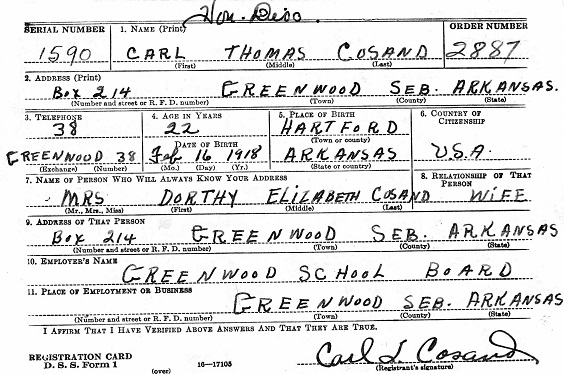 Hon. Disc.
SERIAL NUMBER 1. NAME (Print) ORDER NUMBER
1590 CARL THOMAS COSAND 2887
(First) (Middle) (Last)
2. ADDRESS (Print)
BOX 214 GREENWOOD SEB. ARKANSAS.
(Number and street or R. F. D. number) (Town) (County) (State)
3. TELEPHONE 4. AGE IN YEARS 5. PLACE OF BIRTH 6. COUNTRY OF CITIZENSHIP
38 22 HARTFORD
DATE OF BIRTH (Town or county)
GREENWOOD 38 Feb 16 1918 ARKANSAS U.S.A.
(Exchange) (Number) (Mo.) (Day) (Yr.) (State or country)
7. NAME OF PERSON WHO WILL ALWAYS KNOW YOUR ADDRESS 8. RELATIONSHIP OF THAT PERSON
MRS DORTHY ELIZABETH COSAND WIFE
(Mr., Mrs., Miss) (First) (Middle) (Last)
9. ADDRESS OF THAT PERSON
BOX 214 GREENWOOD SEB. ARKANSAS
(Number and street or R. F. D. number) (Town) (County) (State)
10. EMPLOYER'S NAME
GREENWOOD SCHOOL BOARD
11. PLACE OF EMPLOYMENT OR BUSINESS
GREENWOOD SEB. ARKANSAS
(Number and street or R. F. D. number) (Town) (County) (State)
I AFFIRM THAT I HAVE VERIFIED ABOVE ANSWERS AND THAT THEY ARE TRUE.
REGISTRATION CARD
D. S. S. Form 1 16—17105 Carl T. Cosand
(over) (Registrant's signature)